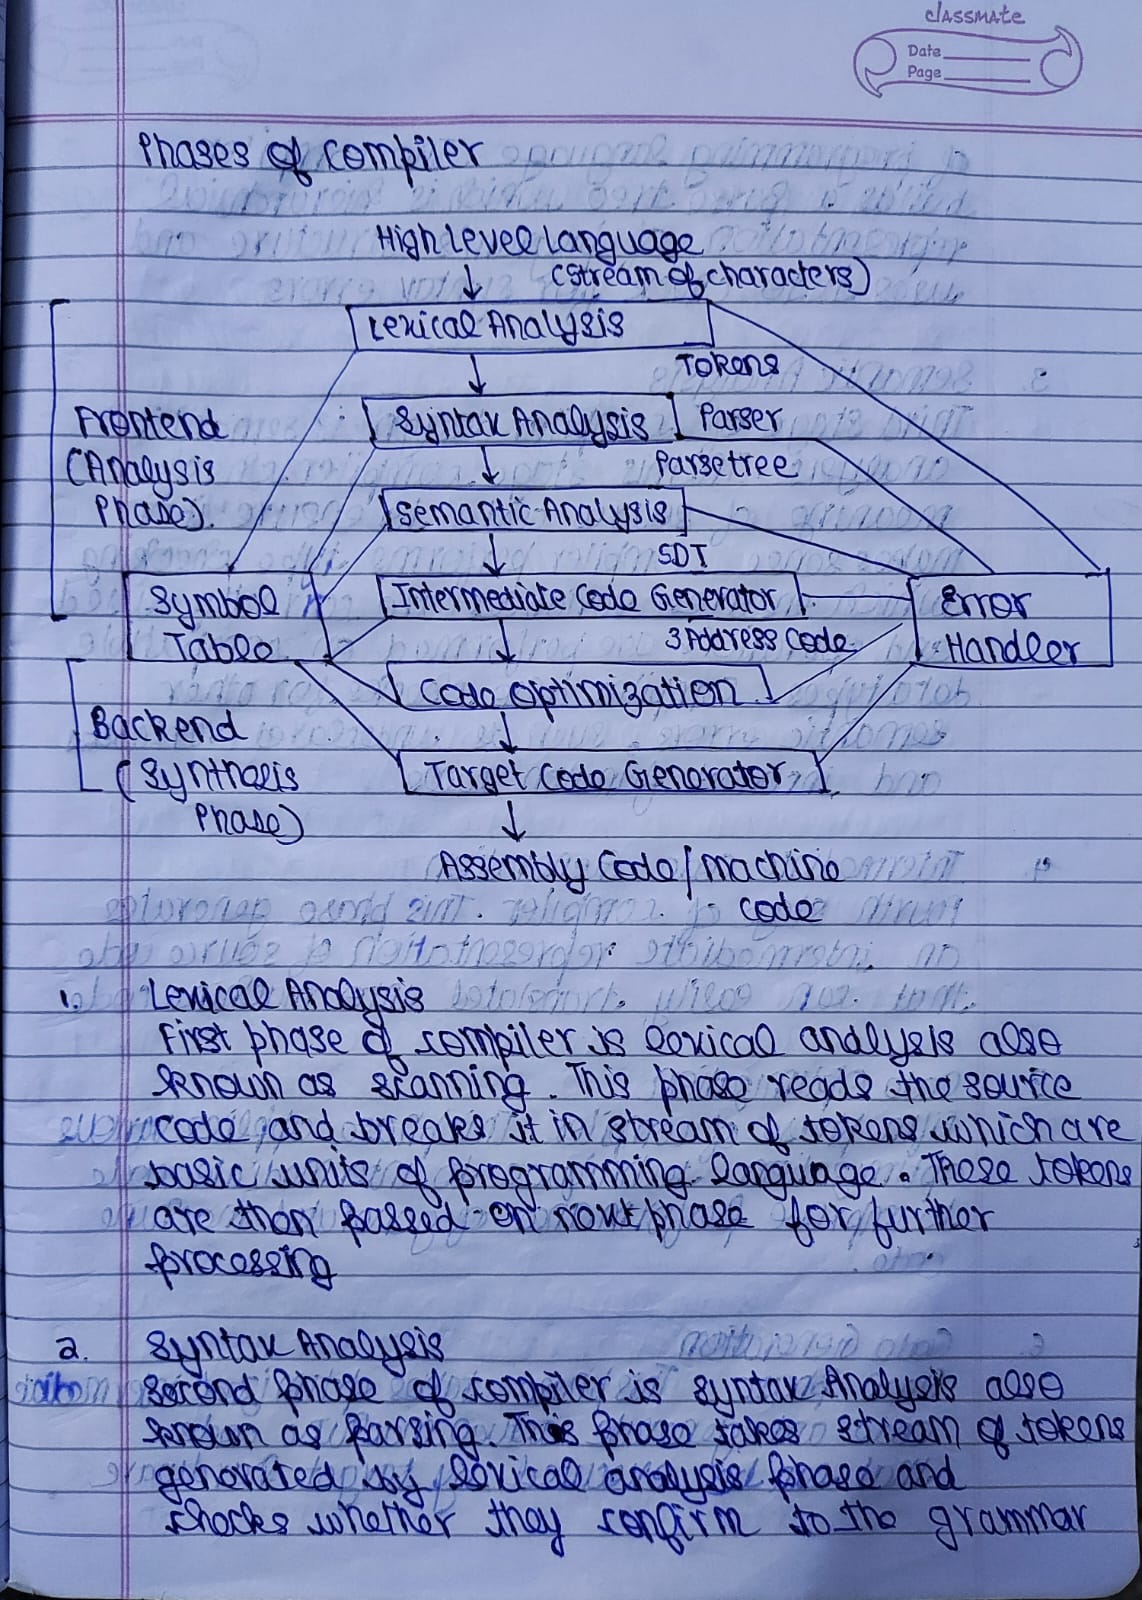 classmate
Date
Page
Phases of compiler
High level language
(Stream of characters)
Lexical Analysis
Tokens
Syntax Analysis Parser
Parse tree
Semantic Analysis
SDT
Frontend
(Analysis
Phase).
Symbol
Table
Intermediate Code Generator
3 Address Code
Error
Handler
Code Optimization
Backend
(Synthesis
Phase)
Target Code Generator
Assembly Code/machine
code
1. Lexical Analysis
First phase of compiler is lexical analysis also
known as scanning. This phase reads the source
code and breaks it in stream of tokens which are
basic units of programming language. These tokens
are then passed on next phase for further
processing
2. Syntax Analysis
Second phase of compiler is syntax Analysis also
known as parsing. This phase takes stream of tokens
generated by lexical analysis phase and
checks whether they confirm to the grammar